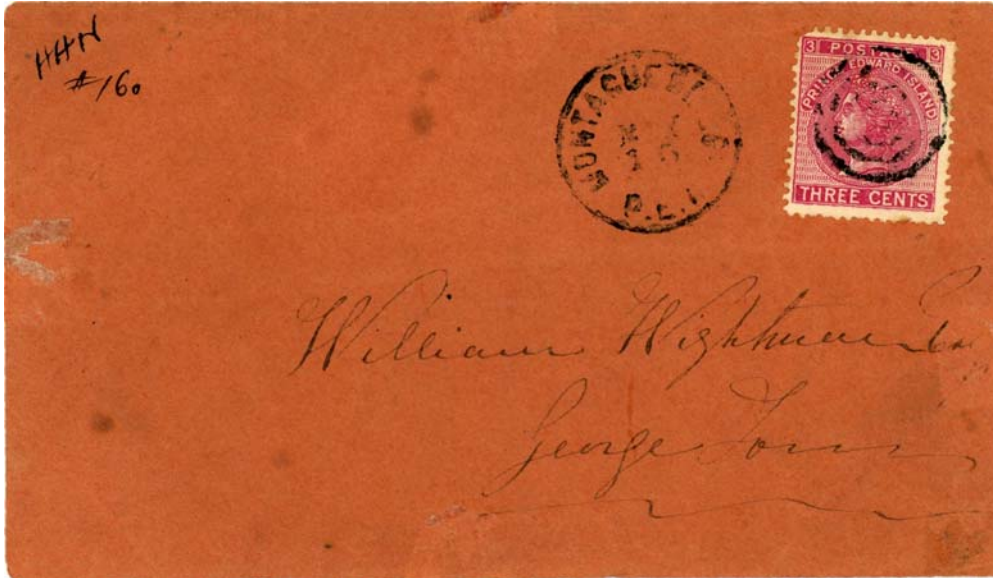 HHN
#160
MONTAGUE
P.E.I
3 POSTAGE 3
PRINCE EDWARD ISLAND
THREE CENTS
William Wightman
George Town